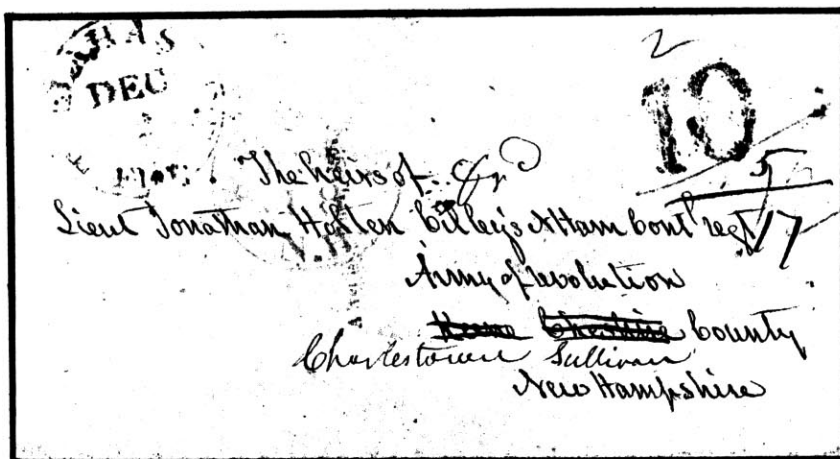 DEC
10
5
The heirs of
17
Lieut Jonathan Holten Cilley's N Ham Cont' regt
Army of revolution
Keene Cheshire County
Charlestown Sullivan
New Hampshire